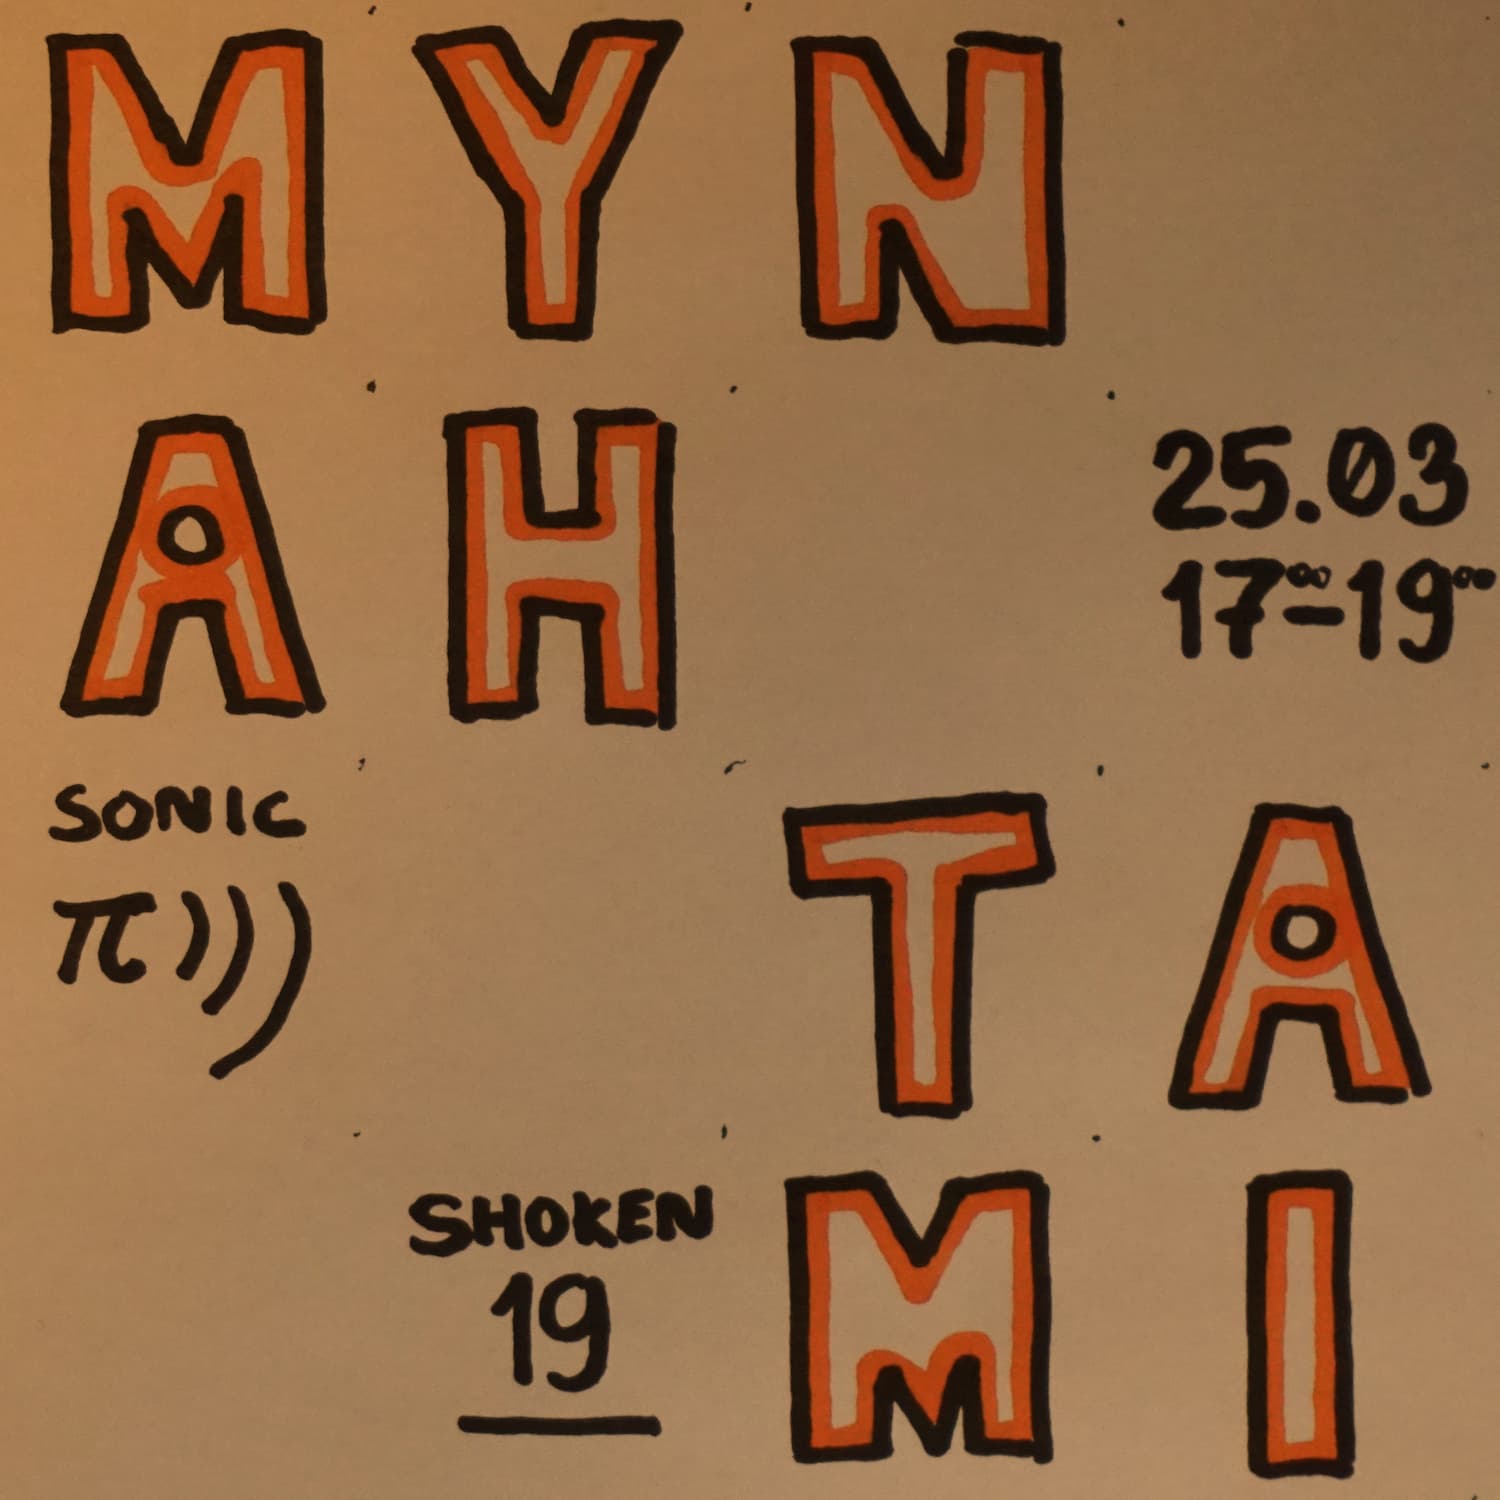 MYN
AH
25.03
17⁰⁰-19⁰⁰
SONIC
π)))
TA
SHOKEN
19
MI